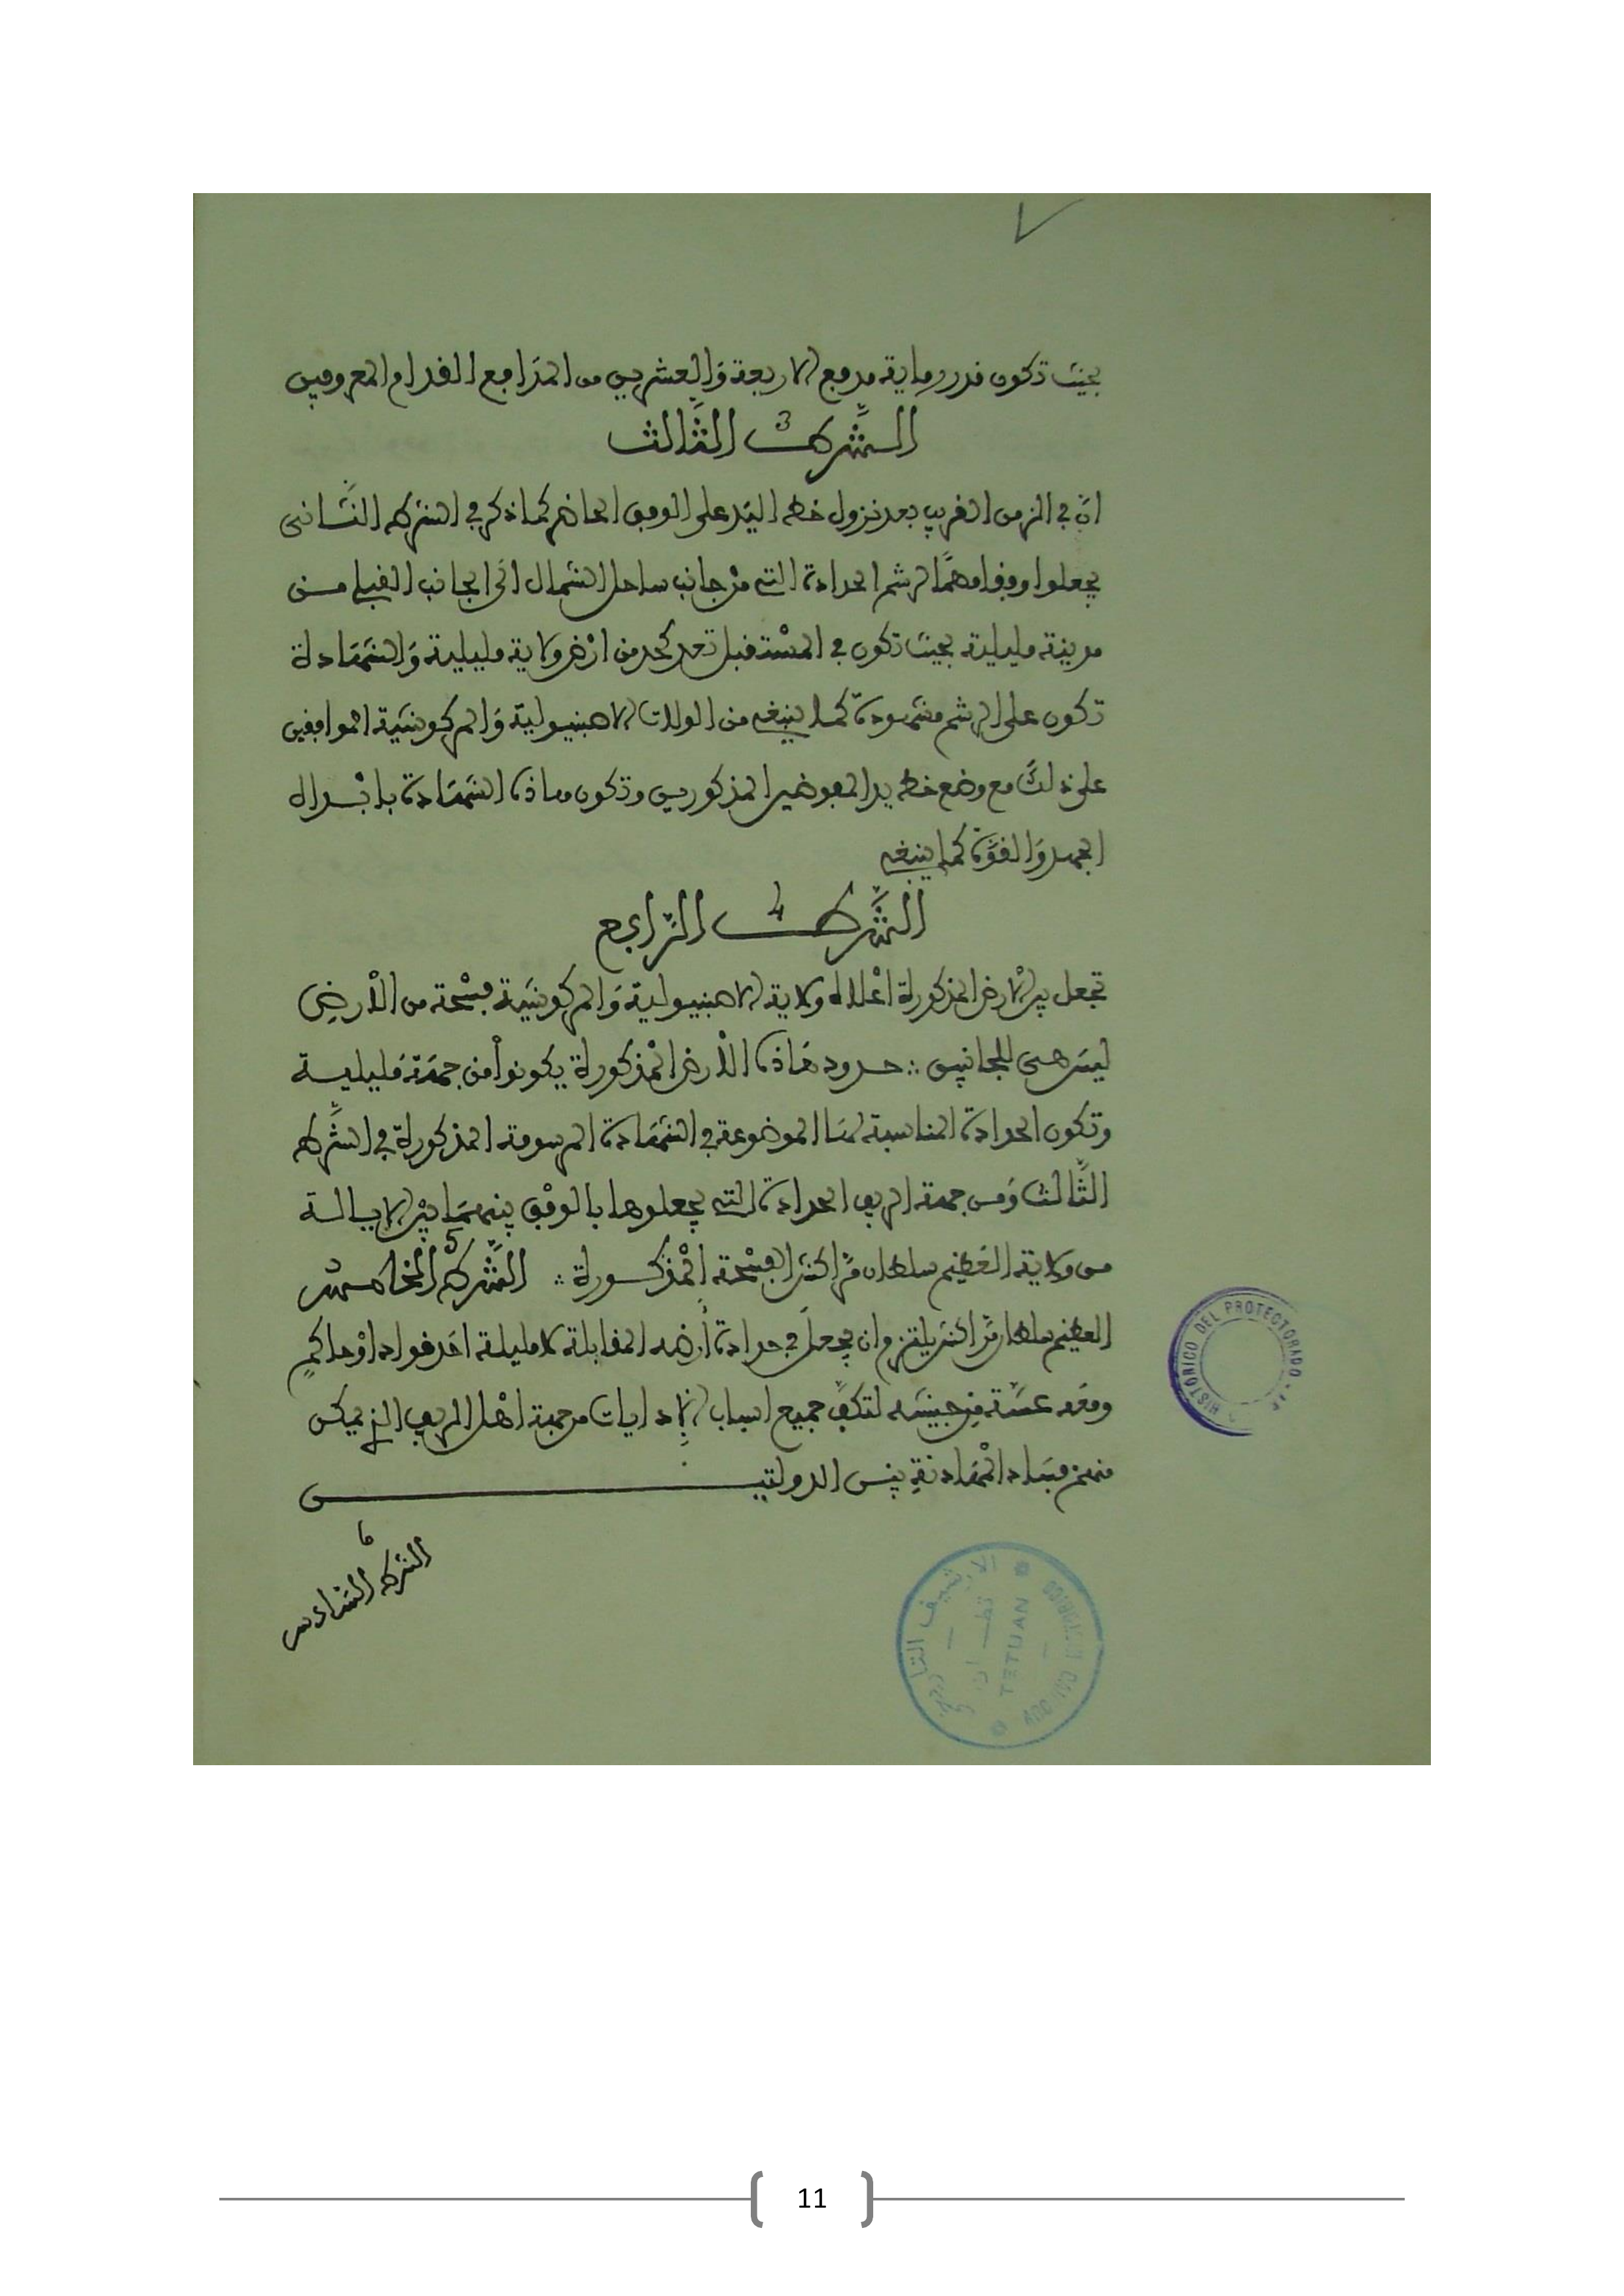 بحيث تكون قدر رماية مدفع الاربعة وَالعشرين من المدَافع القدام المعروفين
الشّرط 3 الثَّالث
انّ في الزمن القريب بعد نزول خط اليَد على الوفق الحاضر كما ذكر في الشرط الثَّاني
يجعلوا وفقا مهمًّا لرشم الحدادة التي منْ جانب ساحل الشمال الَى الجانب القبلي مـن
مدينة مليلية بحيث تكون في المسْتقبل تعد كحد من ارْض ولاية مليلية وَالشهَادة
تكون على الرشم مشهودة كما ينبغي من الولات الاصبنيولية وَالمركوشيَة الموافقين
على ذلكَ مع وضع خط يد المفوضين المذكورين وتكون هاذه الشهَادة بابْدال
الجهد وَالقوَّة كما ينبغي
الشَّرط 4 الرَّابع
تجعل بين الارْض المذكورة اعْلاه ولاية الاصبنيولية وَالمركوشيَة فسْحة من الارض
ليسَ هي للجانبين ∴ حدود هَاذه الارض المْذكورة يكونوا من جهَة مَليلية
وتكون الحدادة المناسبة لهَا الموضوعة في الشهَادة المرسومة المذكورة في الشّرط
الثَّالث وَمن جهة الريف الحدادة التي يجعلوها بالوفْق بينهمَا بيْن الايالة
من ولاية العَظيم سلطان مرَّاكش الفسْحة المْذكـورة ∴ الشَّرط 5 الخَامس
العظيم سلطان مرَّاكش يلتزم ان يجعل في حدادة أرضه المقابلة لامليلة احَد قواده اوْ حاكمٍ
ومَعه عسَّة مِن جيشه لتكفَّ جميع اسباب الإدايات من جهة اهْل الريف الذي يمكن
منهم فسَاد المهَادنة بين الدولتيـــن
6
الشرط السَّادس
HISTORICO DEL PROTECTORADO
الارشيف التاريخي
تطـــوان
TETUAN
11